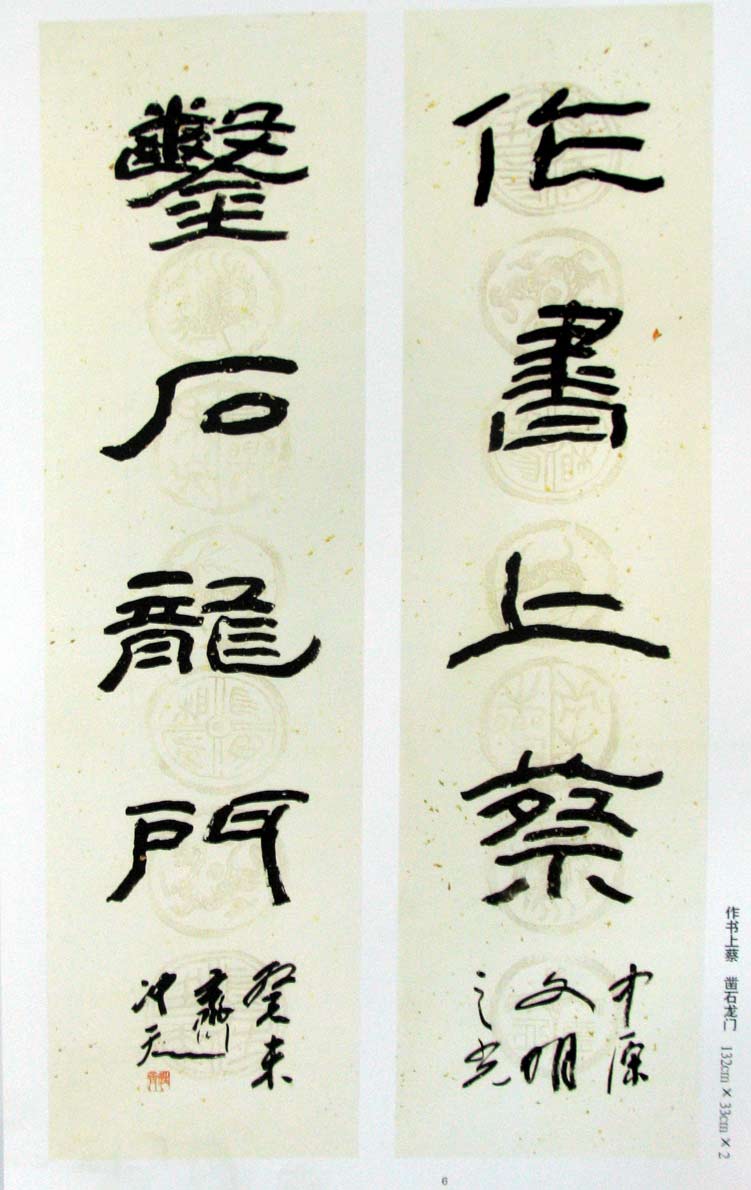 作書上蔡
中原
文明
之光
鑿石龍門
癸未
齊
冲天
作书上蔡 凿石龙门 132cm×33cm×2
6